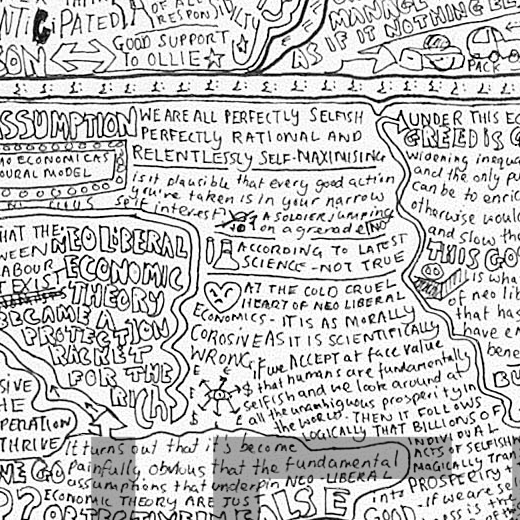 ANTICIPATED
OF ALL
RESPONSIBILITY
GOOD SUPPORT
TO OLLIE
MANAGE
AS IF IT NOTHING
PACK
£: £: £: £: £: £: £: £: £: £: £:
ASSUMPTION
ECONOMICAS
OURAL MODEL
WE ARE ALL PERFECTLY SELFISH
PERFECTLY RATIONAL AND
RELENTLESSLY SELF-MAXIMISING
is it plausible that every good action
you've taken is in your narrow
self interest?
A SOLDIER jumping
on a grenade NO
ACCORDING TO LATEST
SCIENCE - NOT TRUE
AT THE COLD CRUEL
HEART OF NEO LIBERAL
ECONOMICS - IT IS AS MORALLY
COROSIVE AS IT IS SCIENTIFICALLY
WRONG
if we ACCEPT at face value
that humans are fundamentally
selfish and we look around at
all the unambiguous prosperity in
the WORLD - THEN IT FOLLOWS
LOGICALLY THAT BILLIONS OF
INDIVIDUAL
ACTS OF SELFISHN
MAGICALLY TRAN
PROSPERITY
into
GOOD - if we are s
HAT THE NEOLIBERAL
WEEN ECONOMIC
ABOUR THEORY
TEXIST
BECAME A
PROTECTION
RACKET
FOR THE
RICH
SIVE
HE
OPERATION
THRIVE
It turns out that it's become
painfully obvious that the fundamental
assumptions that underpin NEO-LIBERAL
ECONOMIC THEORY ARE JUST
FALSE
UNDER THIS EC
GREED IS G
widening inequa
and the only pu
can be to enric
otherwise would
and slow the
THIS GO
is wha
of neo lib
that has
have en
bene
BU